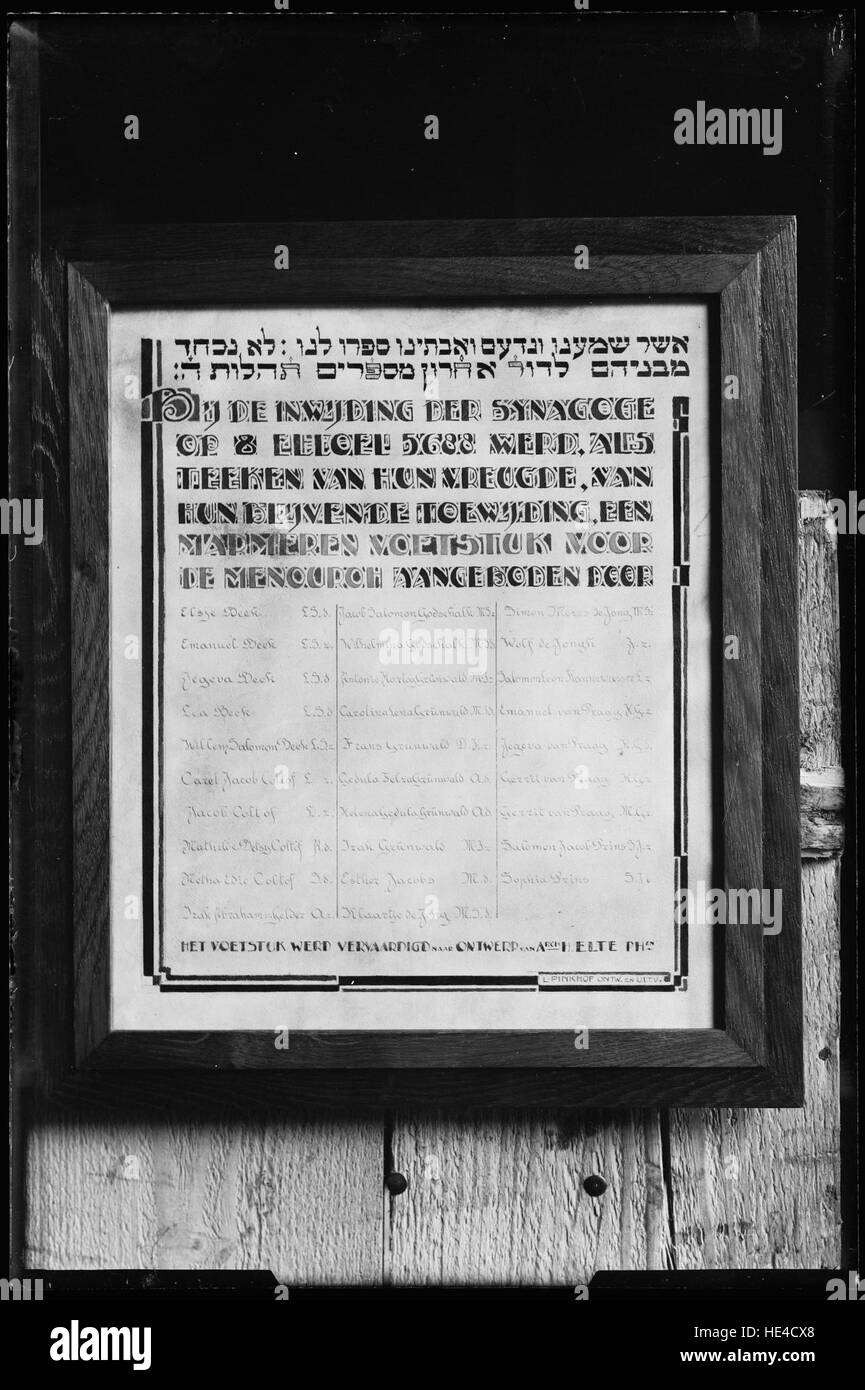 אשר שמענו ונדעם ואבתינו ספרו לנו : לא נכחד
מבניהם לדור אחרון מספרים תהלות ה':
BIJ DE INWIJDING DER SYNAGOGE
OP 8 ELLOEL 5688 WERD, ALS
TEEKEN VAN HUN VREUGDE, VAN
HUN BLIJVENDE TOEWIJDING, EEN
MARMEREN VOETSTUK VOOR
DE MENOUROH AANGEBODEN DOOR
Elsje Beek L.S.d.
Emanuel Beek L.S.z.
Jegeva Beek L.S.d
Lea Beek L.S.d
Willem Salomon Beek L.S.z
Carel Jacob Coltof L. z.
Jacob Coltof L. z.
Mathilde Betsy Coltof d.
Metha Edie Coltof d.
Izak Abraham Gelder A.z.
Jacob Salomon Godschalk M.S.z
Wilhelmina Godschalk M.S.d
Antonie Karley Grünwald M.S.z
Carolina Lena Grünwald M.S.d
Frans Grünwald D.K.z.
Gedula Elza Grünwald A.d.
Helena Gedula Grünwald A.d.
Izak Grünwald M.S.z
Esther Jacobs M.d.
Klaartje de Jong M.S.d.
Simon Mozes de Jong M.S.z
Wolf de Jongh J.z.
Salomon Leon Kannewasser L.z
Emanuel van Praag K.G.z
Jegeva van Praag
Gerrit van Praag K.G.z
Gerrit van Praag M.G.z
Salomon Jacob Prins S.J.z
Sophia Prins
HET VOETSTUK WERD VERVAARDIGD NAAR ONTWERP VAN ARCH. H. ELTE PHZN
L. PINKHOF ONTW. EN UITV.
alamy
a
a
a
a
alamy
Image ID: HE4CX8
www.alamy.com